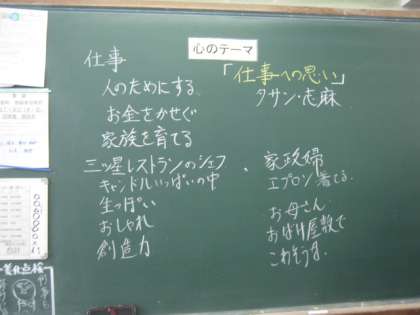 心のテーマ
仕事
「仕事への思い」
人のためにする
タサン・志麻
お金をかせぐ
家族を育てる
三ッ星レストランのシェフ ・ 家政婦
キャンドルいっぱいの中
エプロン着てる
生っぽい
お母さん
おしゃれ
おばけ屋敷で
創造力
こわそうな